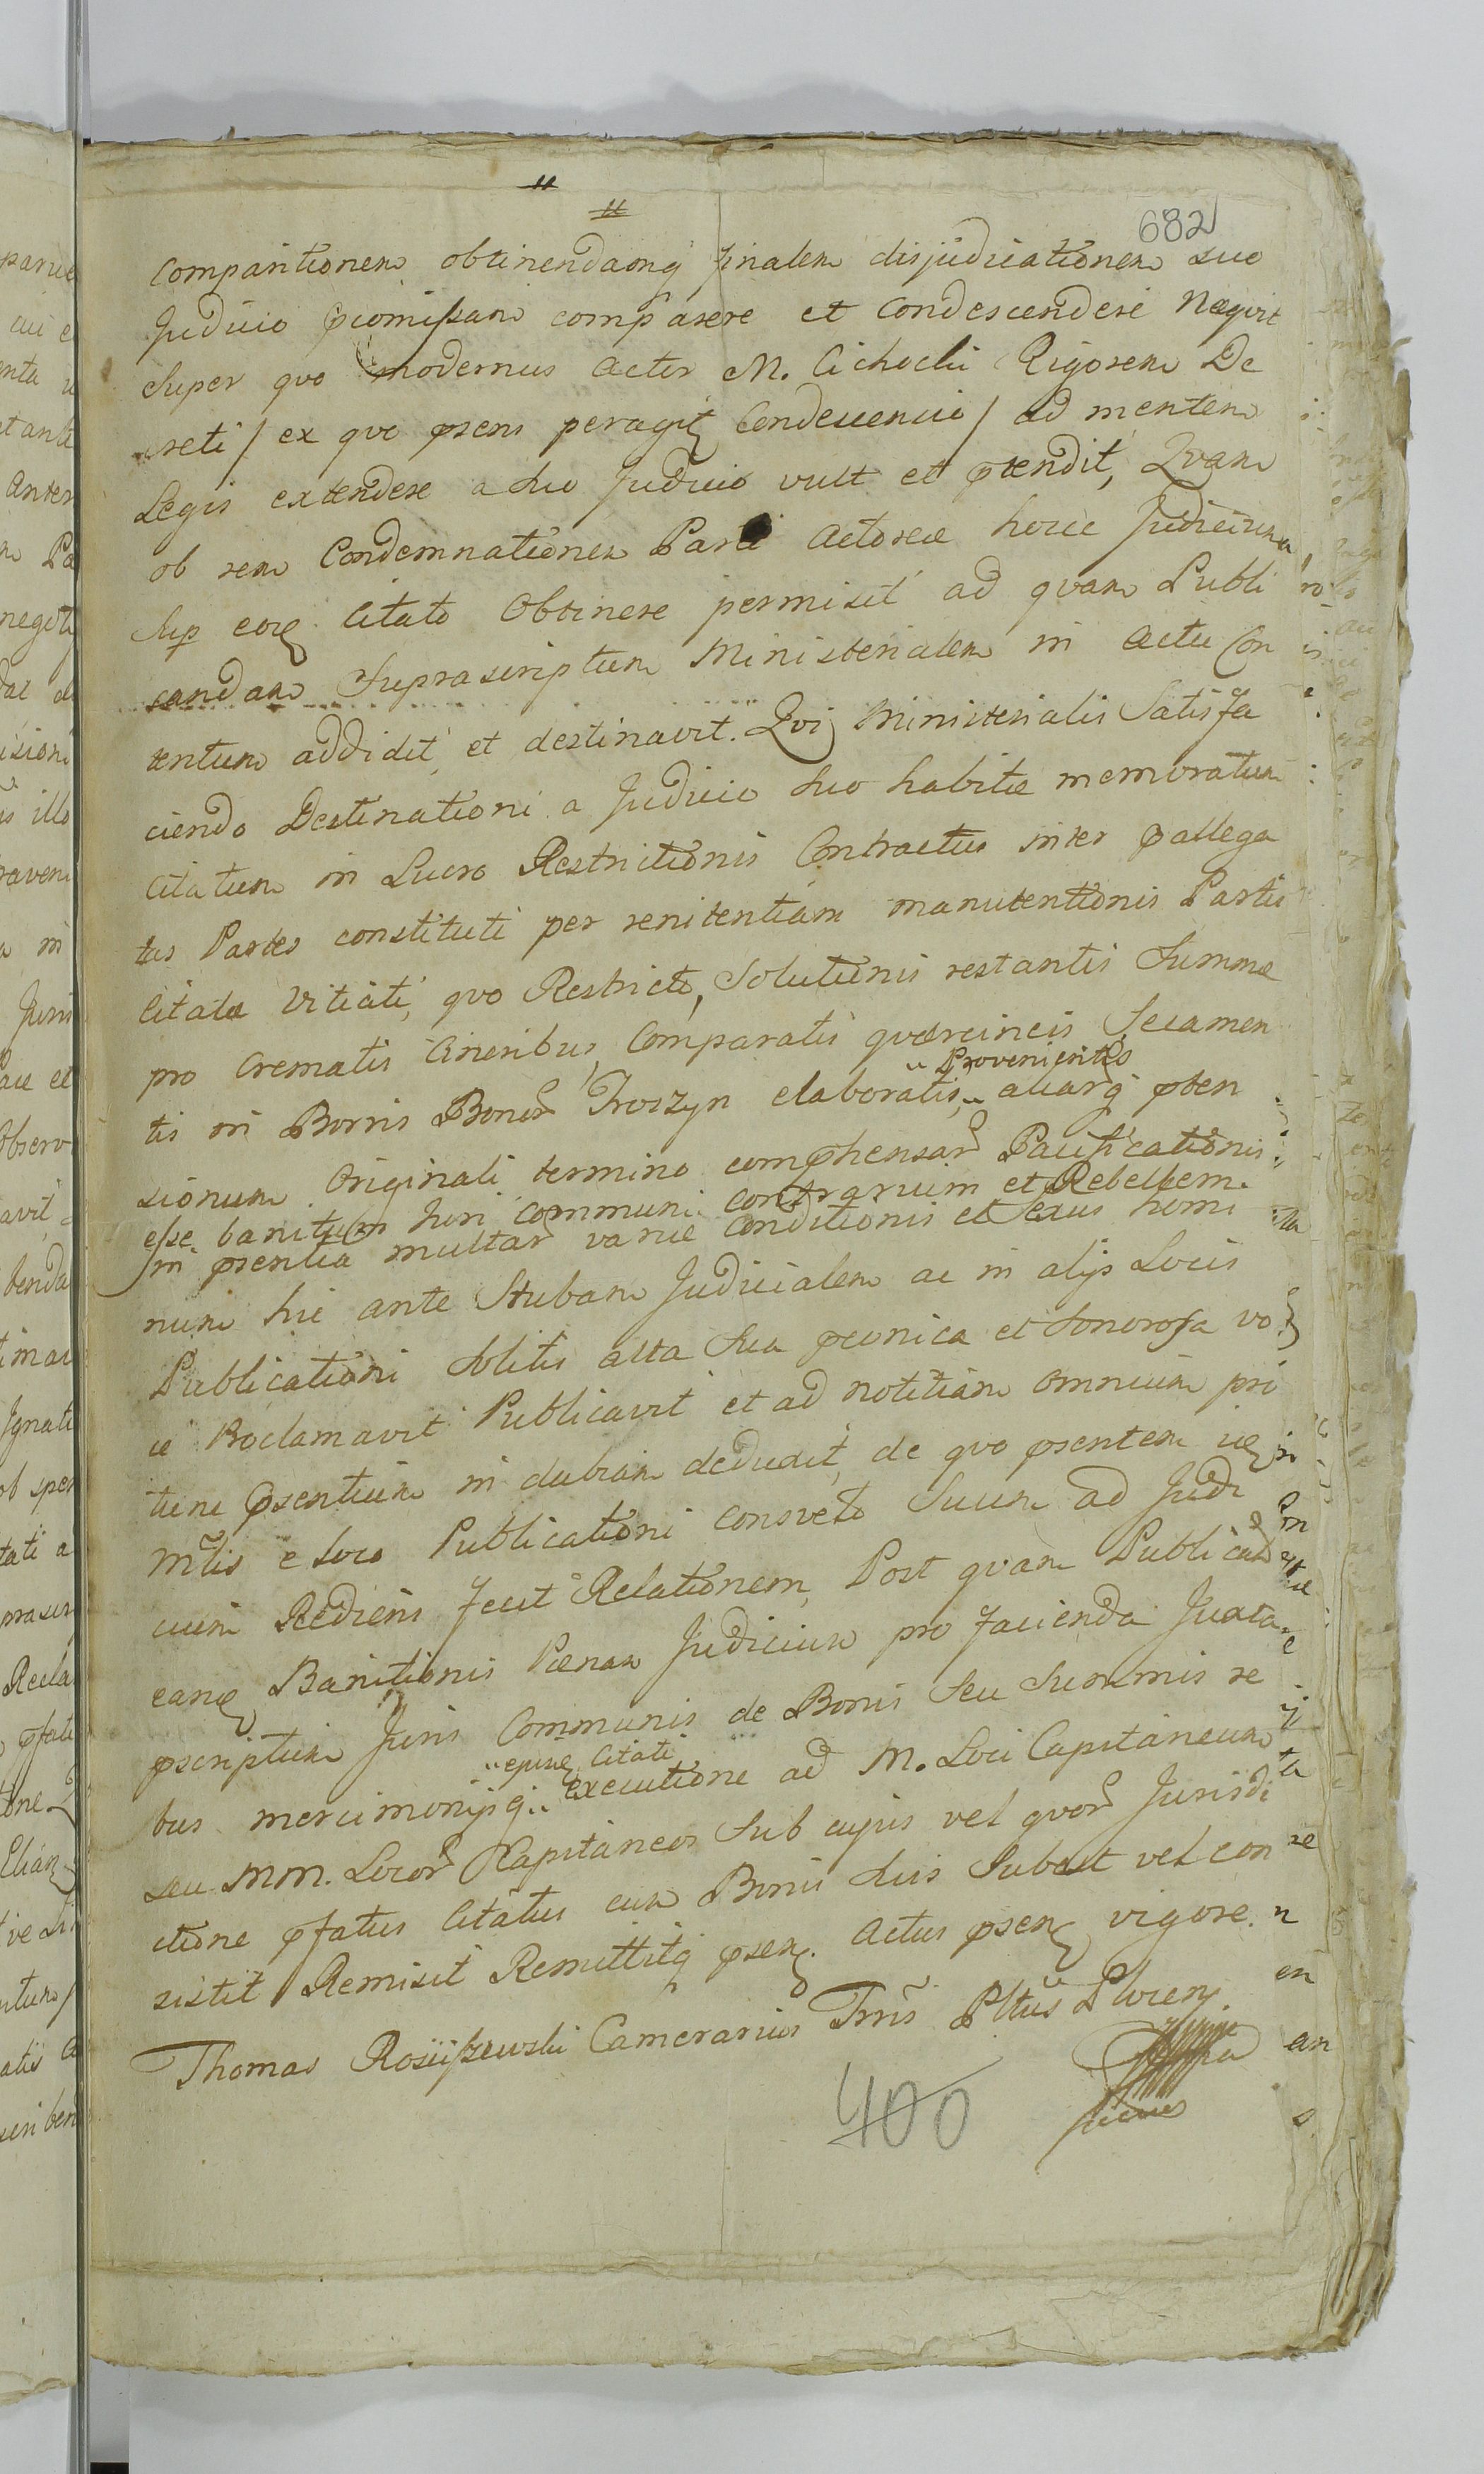 682
comparitionem obtinendamq finalem disjudicationem suo
Judicio promissam comparere et condescendere neqvit
Super qvo modernus Actor M. Cichocki Rigorem De
creti / ex qvo psens peragit Condescensio / ad mentem
Legis extendere a suo Judicio vult et ptendit, Qvam
ob rem Condemnationem Parti Actoreæ hocce Judicium
Sup eoq Citato Obtinere permisit ad qvam Publi
candam Suprascriptum Ministerialem in Actu Con
tentum addidit et destinavit. Qvi Ministerialis Satisfa
ciendo Destinationi a Judicio suo habitæ memoratum
Citatum in Lucro Restrictionis Contractus inter pallega
tas Partes constituti per renitentiam manutentionis Partis
Citatæ Vitiati, qvo Restricto, Solutionis restantis Summæ
pro Crematis Cineribus, Comparatis qvercineis, Secamen
" Provenientis
tis in Borris Bonor Troszyn elaboratis, " aliarq pten
sionum Originali termino comphensar Pacificationis
esse banitum Juri communi contrarium et Rebellem.
in psentia multar variæ conditionis et sexus homi
num hic ante Stubam Judicialem ac in alijs Locis
Publicationi Solitis alta sua pconica et sonorosa vo
ce Proclamavit Publicavit et ad notitiam omnium pri
tunc psentium indubiam deduxit, de qvo psentem
Mtlis e loco Publicationi consveto Suum ad Judi
cium Rediens fecit Relationem, Post qvam Publicat
eanq Banitionis Pœnam Judicium pro facienda Juxta
pscriptum Juris Communis de Bonis Seu Summis re
" ejusq Citati
bus mercimonijsq " executione ad M. Loci Capitaneum
seu MM. Locor Capitaneos Sub cujus vel qvor Jurisdi
ctione pfatus Citatus cum Bonis suis Subest vel con
sistit Remisit Remittitq psen. Actus psen vigore.
Thomas Rosciszewski Camerarius Trris Pltus Plocen.
400